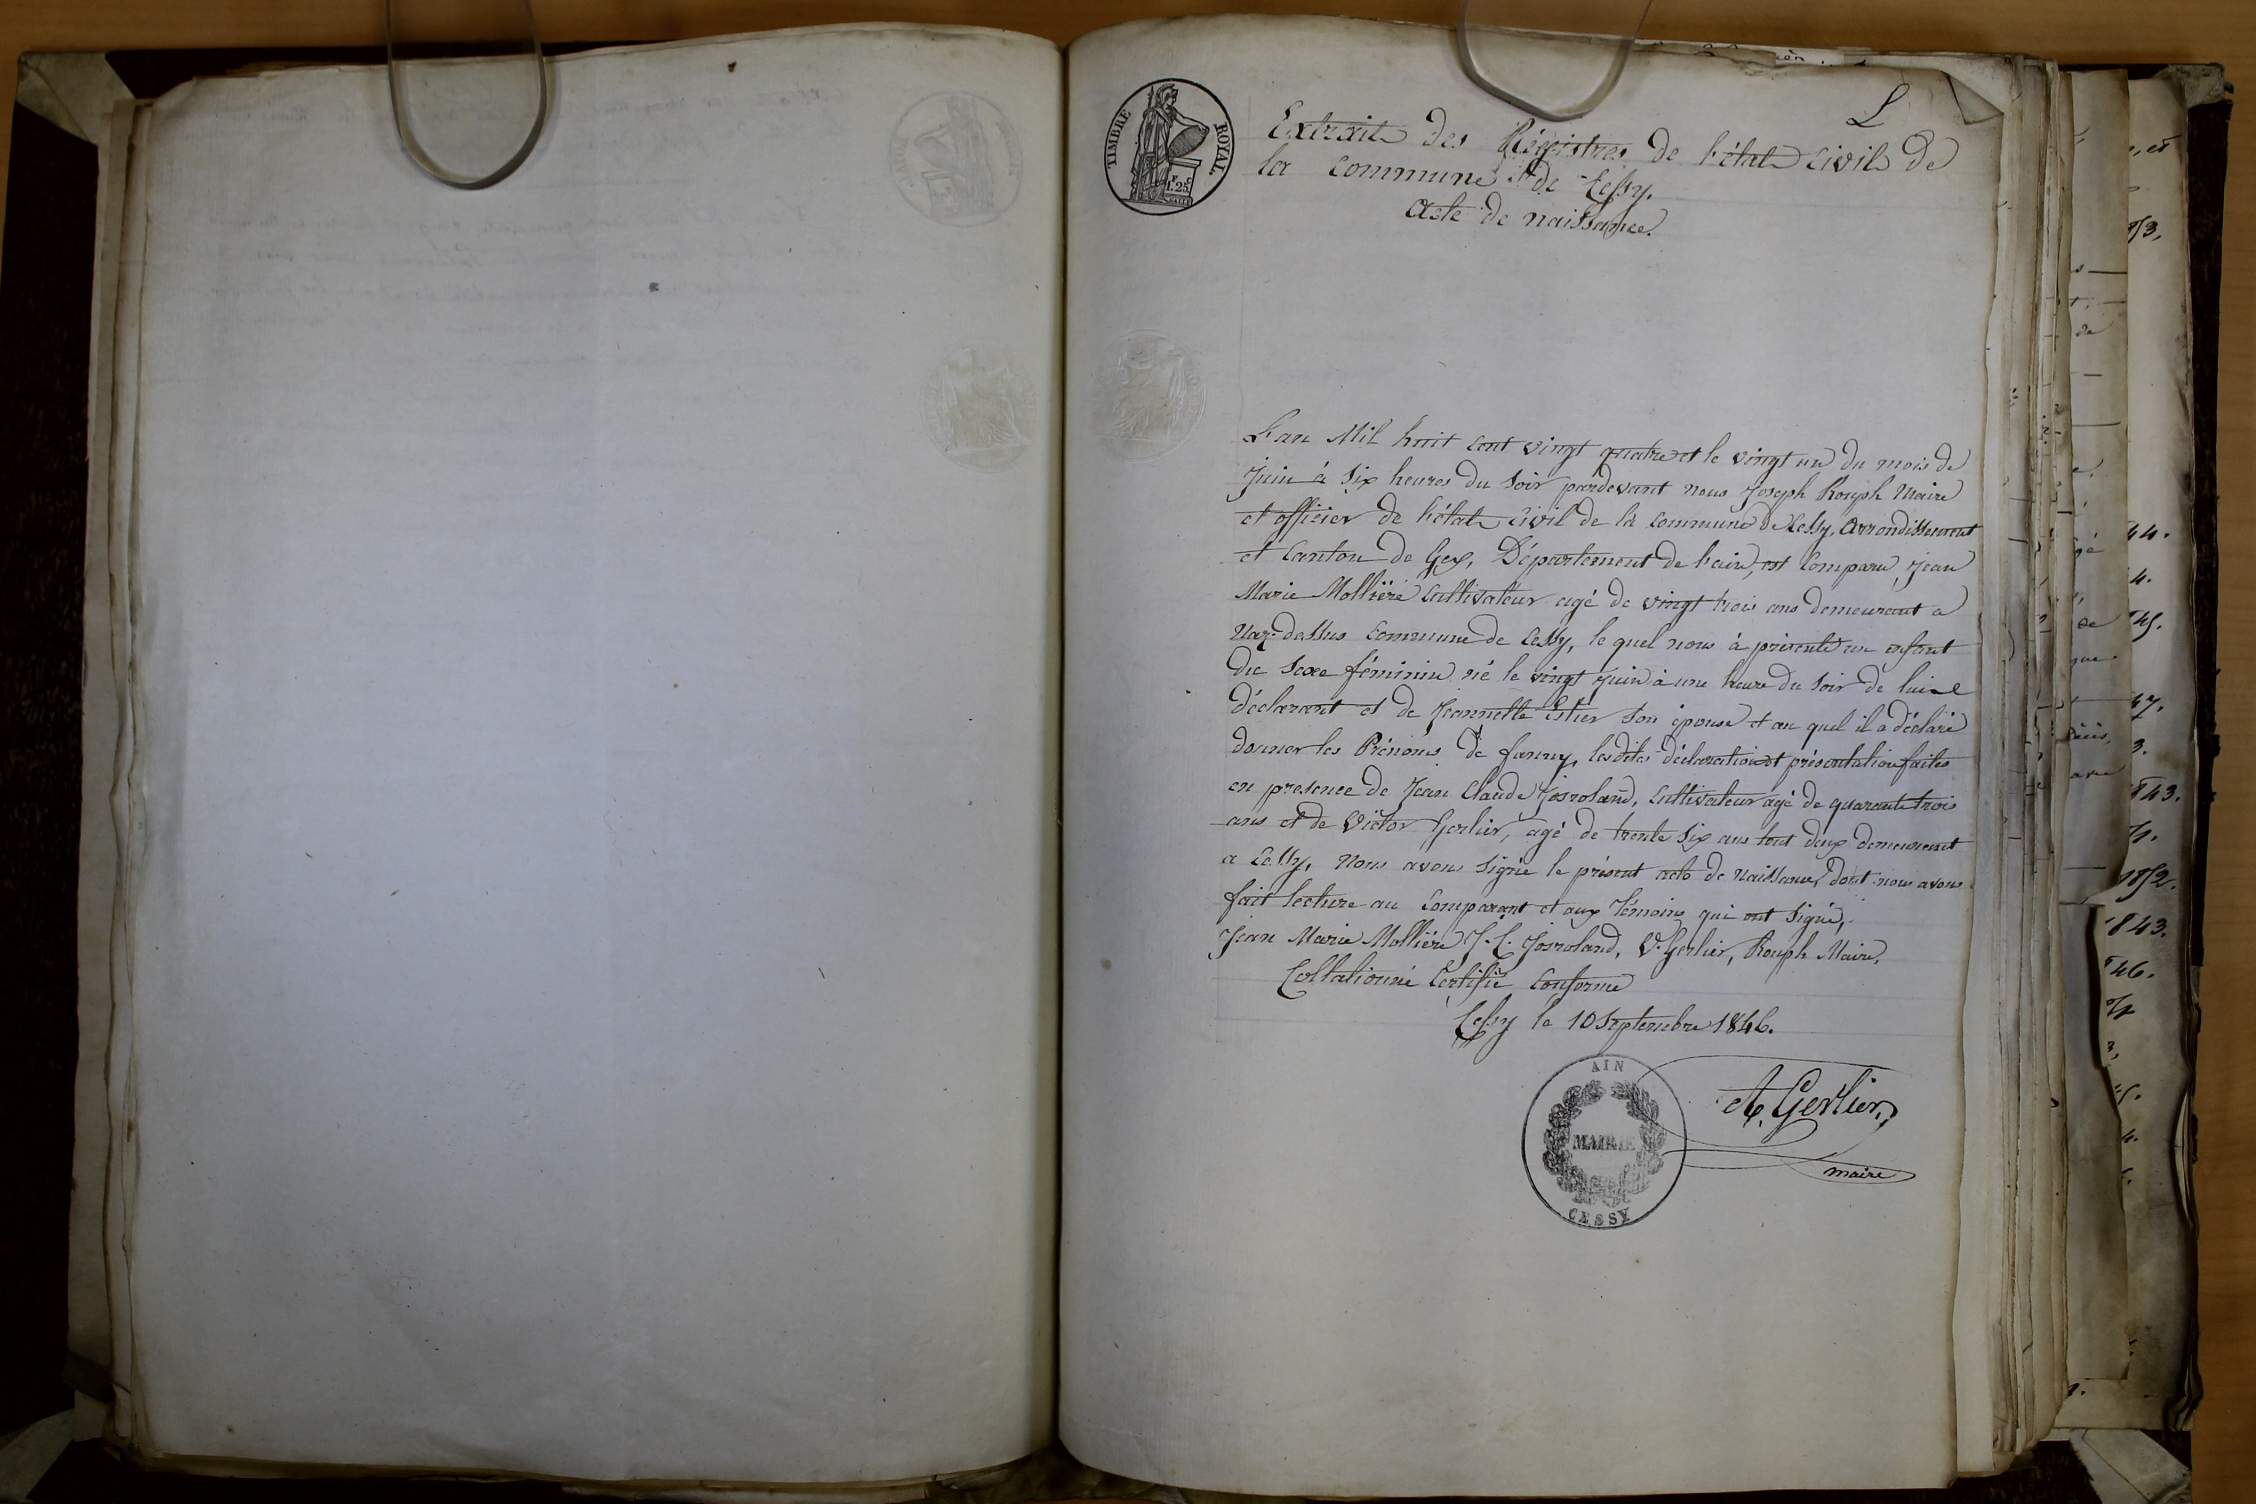 L
TIMBRE ROYAL
1. 25
Extrait des Régistres de l'état civil de
la commune de Cessy.
Acte de naissance.
L'an Mil huit cent vingt quatre et le vingt un du mois de
Juin à six heures du soir pardevant nous Joseph Rouph Maire
et officier de l'état civil de la commune de Cessy, arrondissement
et Canton de Gex, Département de l'ain, est Comparu, Jean
Marie Mollière Cultivateur agé de vingt trois ans demeurant a
dessus commune de Cessy, le quel nous à présenté un enfant
du sexe féminin né le vingt juin à une heure du soir de lui
déclarant et de Jeannette Estier son épouse et au quel il a déclaré
donner les Prénoms de fanny, lesdites déclaration et présentation faites
en presence de Jean Claude Josroland, Cultivateur agé de quarante trois
ans et de Victor Gerlier, agé de trente six ans tout deux demeurant
a Cessy, Nous avons signé le présent acte de naissance, dont nous avons
fait lecture au Comparant et aux témoins qui ont signé,
Jean Marie Mollière, J. C. Josroland, V. Gerlier, Rouph Maire.
Collationné Certifié Conforme
Cessy le 10 Septembre 1846.
A. Gerlier,
maire
AIN
MAIRIE
CESSY